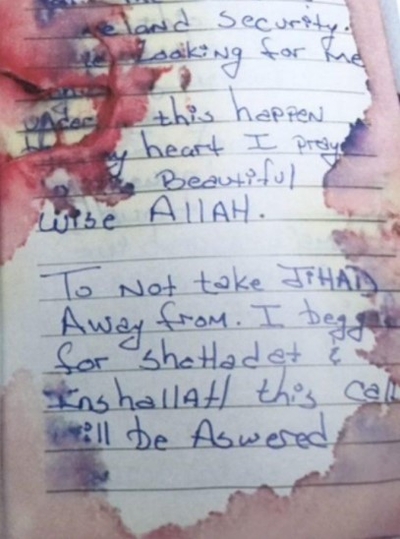 eland security.
Looking for me
this happen
heart I pray
Beautiful
wise AllAH.
To Not take JiHAD
Away from. I begg
for shaHadat &
InshallAH this call
ill be Aswered